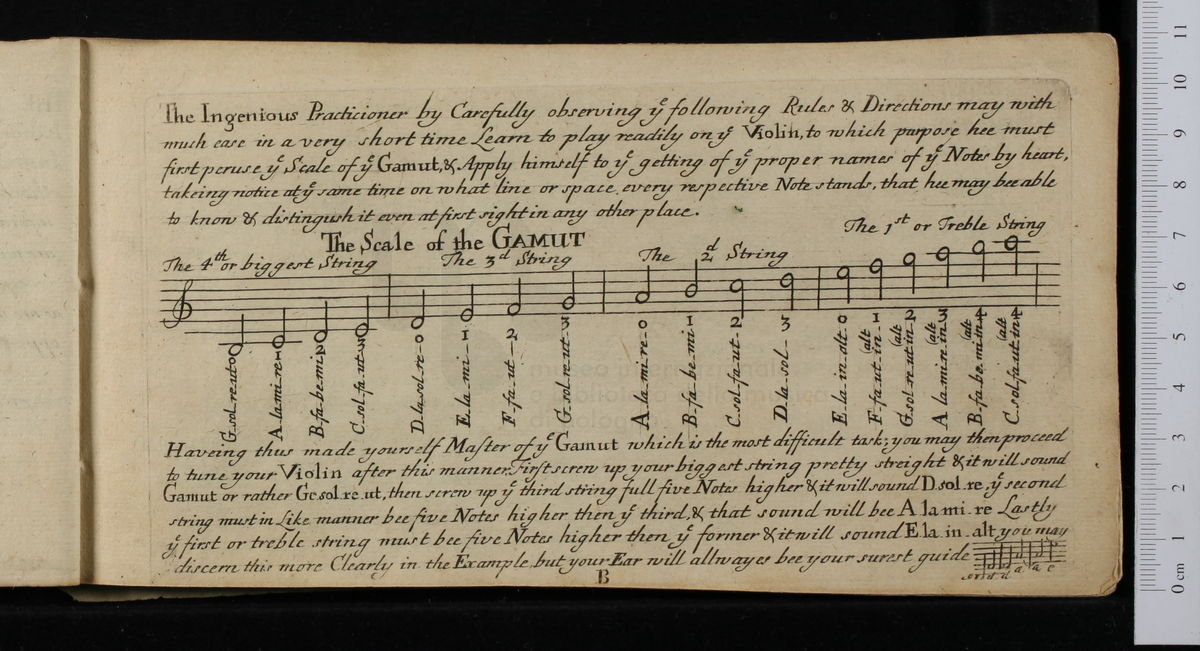 The Ingenious Practicioner by Carefully observing yᵉ following Rules & Directions may with
much ease in a very short time Learn to play readily on yᵉ Violin, to which purpose hee must
first peruse yᵉ Scale of yᵉ Gamut, & Apply himself to yᵉ getting of yᵉ proper names of yᵉ Notes by heart,
takeing notice at yᵉ same time on what line or space every respective Note stands, that hee may bee able
to know & distingush it even at first sight in any other place.
The 1st or Treble String
The Scale of the GAMUT
The 4th or biggest String
The 3d String
The 2d String
0 1 2 3 0 1 2 3 0 1 2 3 0 1 2 3 4 4
G sol re ut
A la mi re
B fa be mi
C sol fa ut
D la sol re
E la mi
F fa ut
G sol re ut
A la mi re
B fa be mi
C sol fa ut
D la sol
E la in alt
F fa ut in alt
G sol re ut in alt
A la mi re in alt
B fa be mi in alt
C sol fa ut in alt
museo internazionale
e biblioteca della musica
di bologna
Haveing thus made yourself Master of yᵉ Gamut which is the most difficult task; you may then proceed
to tune your Violin after this manner. First screw up your biggest string pretty streight & it will sound
Gamut or rather Ge sol re ut, then screw up yᵉ third string full five Notes higher & it will sound D sol re, yᵉ second
string must in Like manner bee five Notes higher then yᵉ third, & that sound will bee A la mi re Lastly
yᵉ first or treble string must bee five Notes higher then yᵉ former & it will sound E la in alt you may
discern this more Clearly in the Example, but your Ear will allwayes bee your surest guide
B
0 cm 1 2 3 4 5 6 7 8 9 10 11